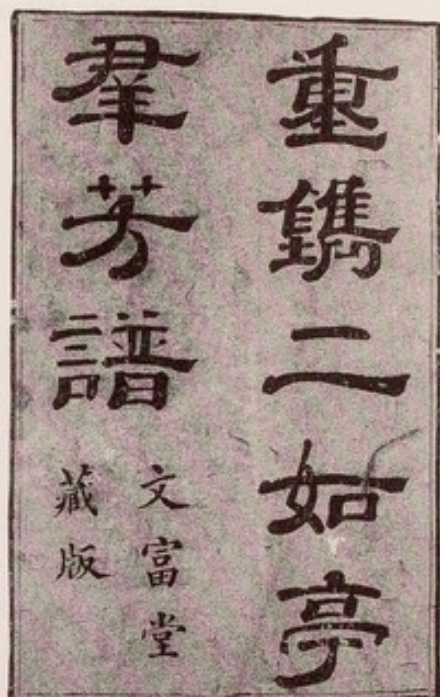 重鐫二如亭
羣芳譜
文富堂
藏版